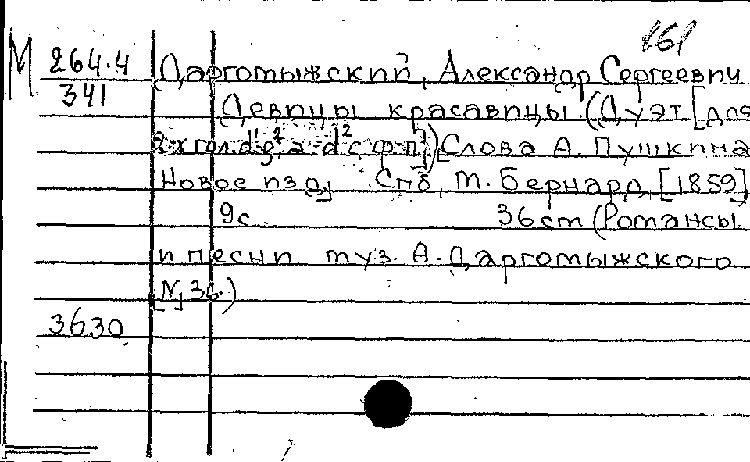 161
М 264.4 Даргомыжский, Александр Сергеевич
341 Девицы красавицы (Дуэт [для
2-х гол. d¹g², a-d² с ф-п]) Слова А. Пушкина
Новое изд. Спб, М. Бернард, [1859]
9с 36 cm (Романсы
и песни муз. А. Даргомыжского
N 36.)
3630